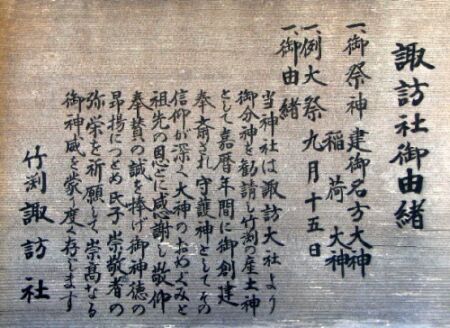 諏訪社御由緒
一、御祭神 建御名方大神
稲荷大神
一、例大祭 九月十五日
一、御由緒
当神社は諏訪大社より
御分神を勧請し竹渕の産土神
として嘉暦年間に御創建
奉斎され守護神としてその
信仰が深く大神のおめぐみと
祖先の恩どに感謝し敬仰
奉賛の誠を捧げ御神徳の
昂揚につとめ氏子崇敬者の
弥栄を祈願して崇高なる
御神威を蒙り度く存じます
竹渕諏訪社